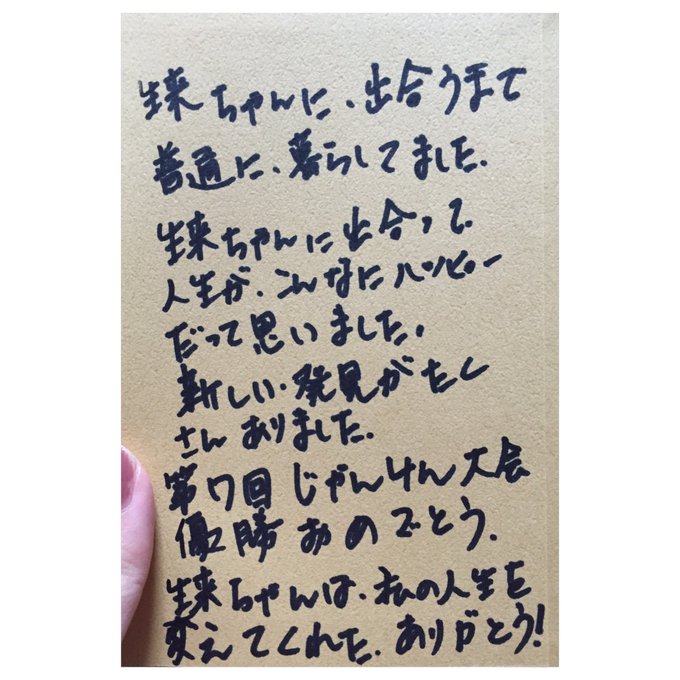 生来ちゃんに、出合うまで
普通に、暮らしてました.
生来ちゃんに出合って.
人生が、こんなにハッピー
だって思いました.
新しい、発見がたく
さんありました.
第7回じゃんけん大会
優勝おめでとう.
生来ちゃんは、私の人生を
変えてくれた.ありがとう!